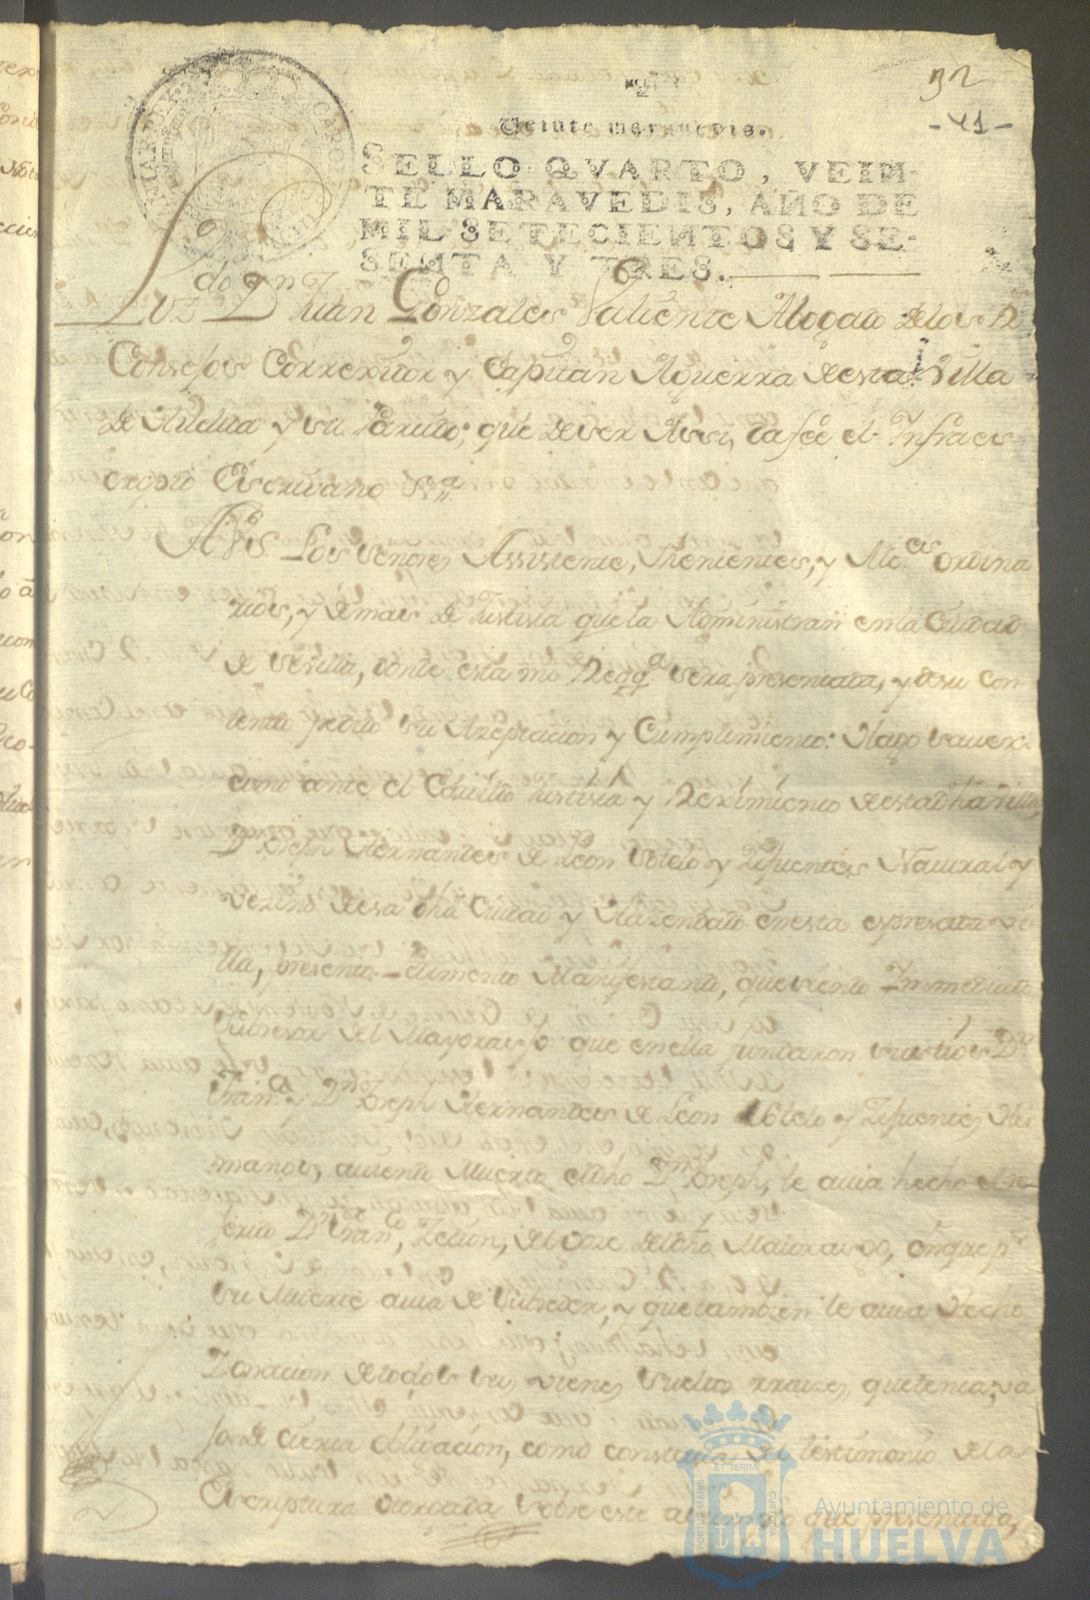 32
-41-
Veinte maravedis.
SELLO QVARTO, VEIN-
TE MARAVEDIS, AÑO DE
MIL SETECIENTOS Y SE-
SENTA Y TRES.
D.n Juan Gonzales Valiente Abogado delos R.s
Consejos Correxidor y Capitan Aguerra de esta Villa
de Huelva y su Partido; que de ser Assi, da fee el Infraes
cripto Escrivano
Los señores Assistente, Thenientes, y Alc.es Ordina
rios, y demas de Justisia que la Administran en la Ciudad
de Sevilla, donde esta mi Req.a sera presentada, y de su con
tenido pedido su Azeptacion y Cumplimiento: Hago saver
como ante el Cavildo Justisia y Reximiento de esta dha villa,
D.n Joseph Hernandes de Leon Sotelo y Zifuentes Natural y
vezino de esa dha Ciudad y Hazendado en esta espresada vi
lla, presento Pedimento Manifestando, que siendo Inmediato
Subsesor del Mayorasgo que en ella fundaron sus tios D.n
Fran.co y D.n Joseph Hernandes de Leon Sotelo y Zifuentes Her
manos, aviendo Muerto el dho D.n Joseph, le avia hecho el re
ferido D.n Fran.co, Zecion, del Goze del dho Maiorasgo, en que p.r
su Muerte avia de Subseder, y que tambien le avia Hecho
Donacion de todos sus vienes sueltos rraizes, que tenia, va
jo de Cierta oblicacion, como constava del testimonio de la
Escriptura otorgada sobre este asumpto que presentava,
ET TERRA
PORTUS MARIS
CUSTODIA
Ayuntamiento de
HUELVA